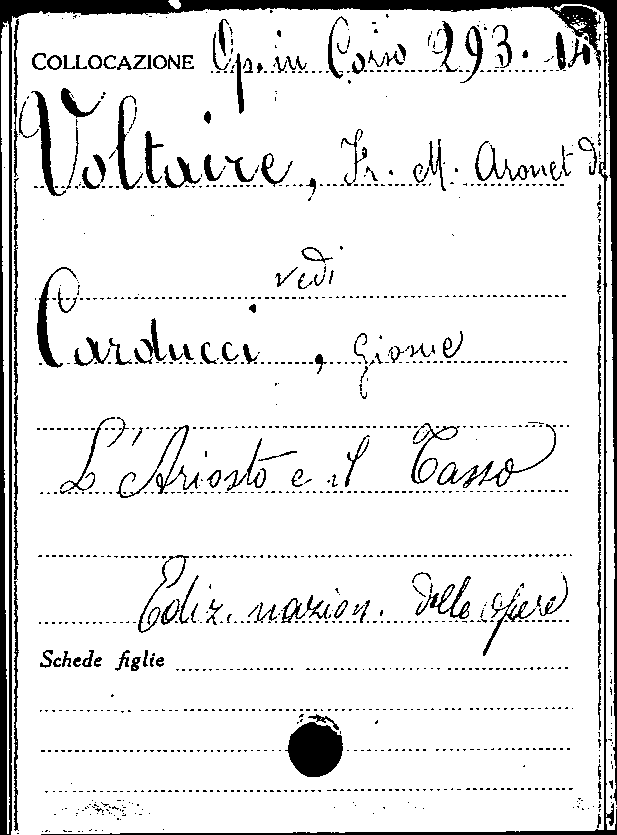 COLLOCAZIONE Op. in Corso 293. 14
Voltaire, Fr. M. Arouet de
vedi
Carducci, Giosue
L'Ariosto e il Tasso
Ediz. nazion. delle opere
Schede figlie